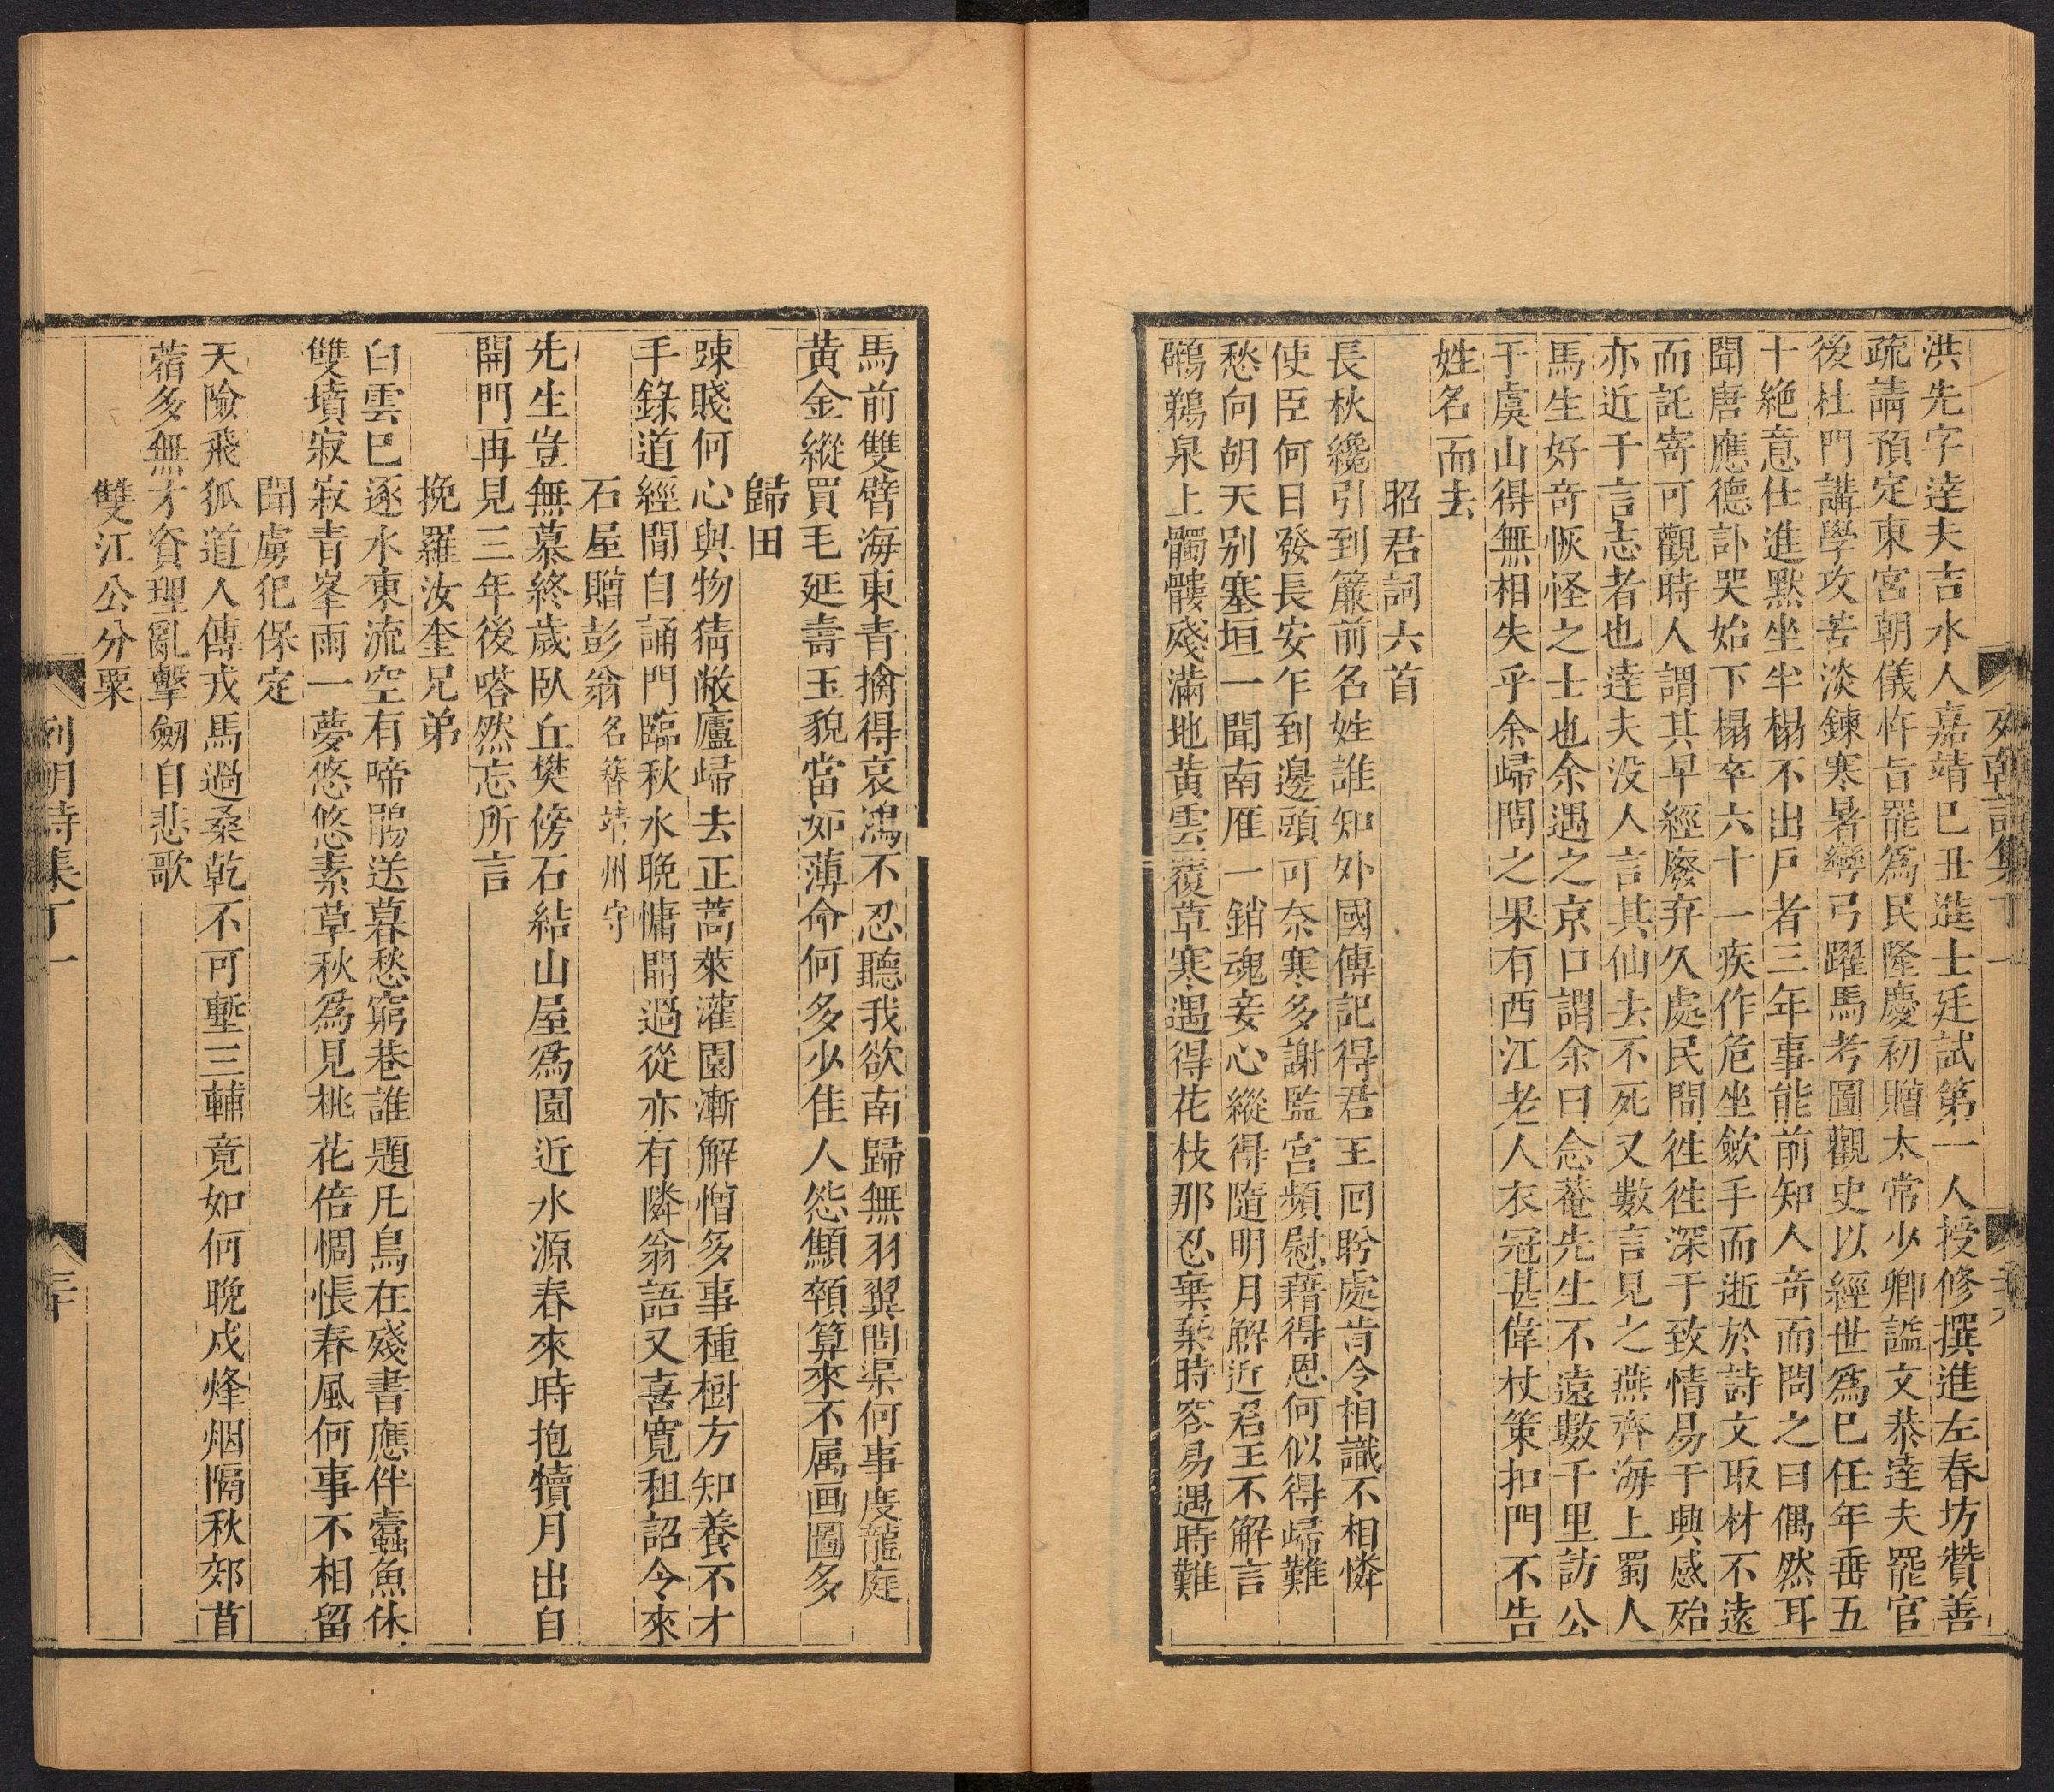 洪先字達夫吉水人嘉靖巳丑進士廷試第一人授修撰進左春坊贊善
疏請預定東宮朝儀忤旨罷爲民隆慶初贈太常少卿諡文恭達夫罷官
後杜門講學攻苦淡鍊寒暑彎弓躍馬考圖觀史以經世爲巳任年垂五
十絶意仕進默坐半榻不出戸者三年事能前知人奇而問之曰偶然耳
聞唐應德訃哭始下榻卒六十一疾作危坐歛手而逝於詩文取材不遠
而託寄可觀時人謂其早經廢弃久處民間徃徃深于致情易于興感殆
亦近于言志者也達夫没人言其仙去不死又數言見之燕齊海上蜀人
馬生好奇恢怪之士也余遇之京口謂余曰念菴先生不遠數千里訪公
于虞山得無相失乎余歸問之果有西江老人衣冠甚偉杖策扣門不告
姓名而去
昭君詞六首
長秋纔引到簾前名姓誰知外國傳記得君王囘盻處肯令相識不相憐
使臣何日發長安乍到邊頭可奈寒多謝監宫頻慰藉得恩何似得歸難
愁向胡天别塞垣一聞南雁一銷魂妾心縱得隨明月解近君王不解言
鸊鵜泉上髑髏殘滿地黄雲覆草寒遇得花枝那忍棄棄時容易遇時難
列朝詩集丁一
馬前雙臂海東青擒得哀鴻不忍聽我欲南歸無羽翼問渠何事度龍庭
黄金縱買毛延壽玉貌當如薄命何多少佳人怨顦顇算來不属画圖多
歸田
踈賤何心與物猜敝廬歸去正蒿萊灌園漸解憎多事種樹方知養不才
手錄道經閒自誦門臨秋水晚慵開過從亦有隣翁語又喜寬租詔令來
石屋贈彭翁名簪靖州守
先生豈無慕終歲臥丘樊傍石結山屋爲園近水源春來時抱犢月出自
開門再見三年後嗒然忘所言
挽羅汝奎兄弟
白雲巳逐水東流空有啼鵑送暮愁窮巷誰題凡鳥在殘書應伴蠧魚休
雙墳寂寂青峯雨一夢悠悠素草秋爲見桃花倍惆悵春風何事不相留
聞虜犯保定
天險飛狐道人傳戎馬過桑乾不可塹三輔竟如何晚戍烽烟隔秋郊苜
蓿多無才資理亂擊劒自悲歌
雙江公分粟
列朝詩集丁一
三十